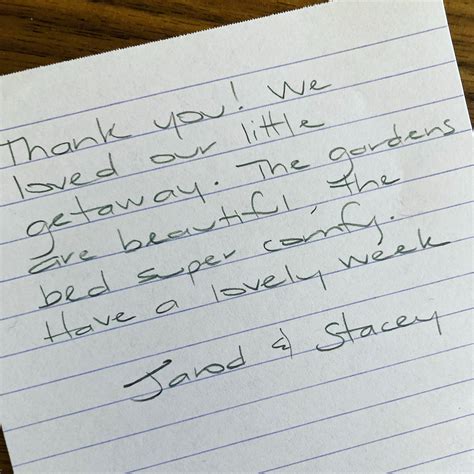 Thank you! We
loved our little
getaway. The gardens
are beautiful, the
bed super comfy.
Have a lovely week
Jarod & Stacey